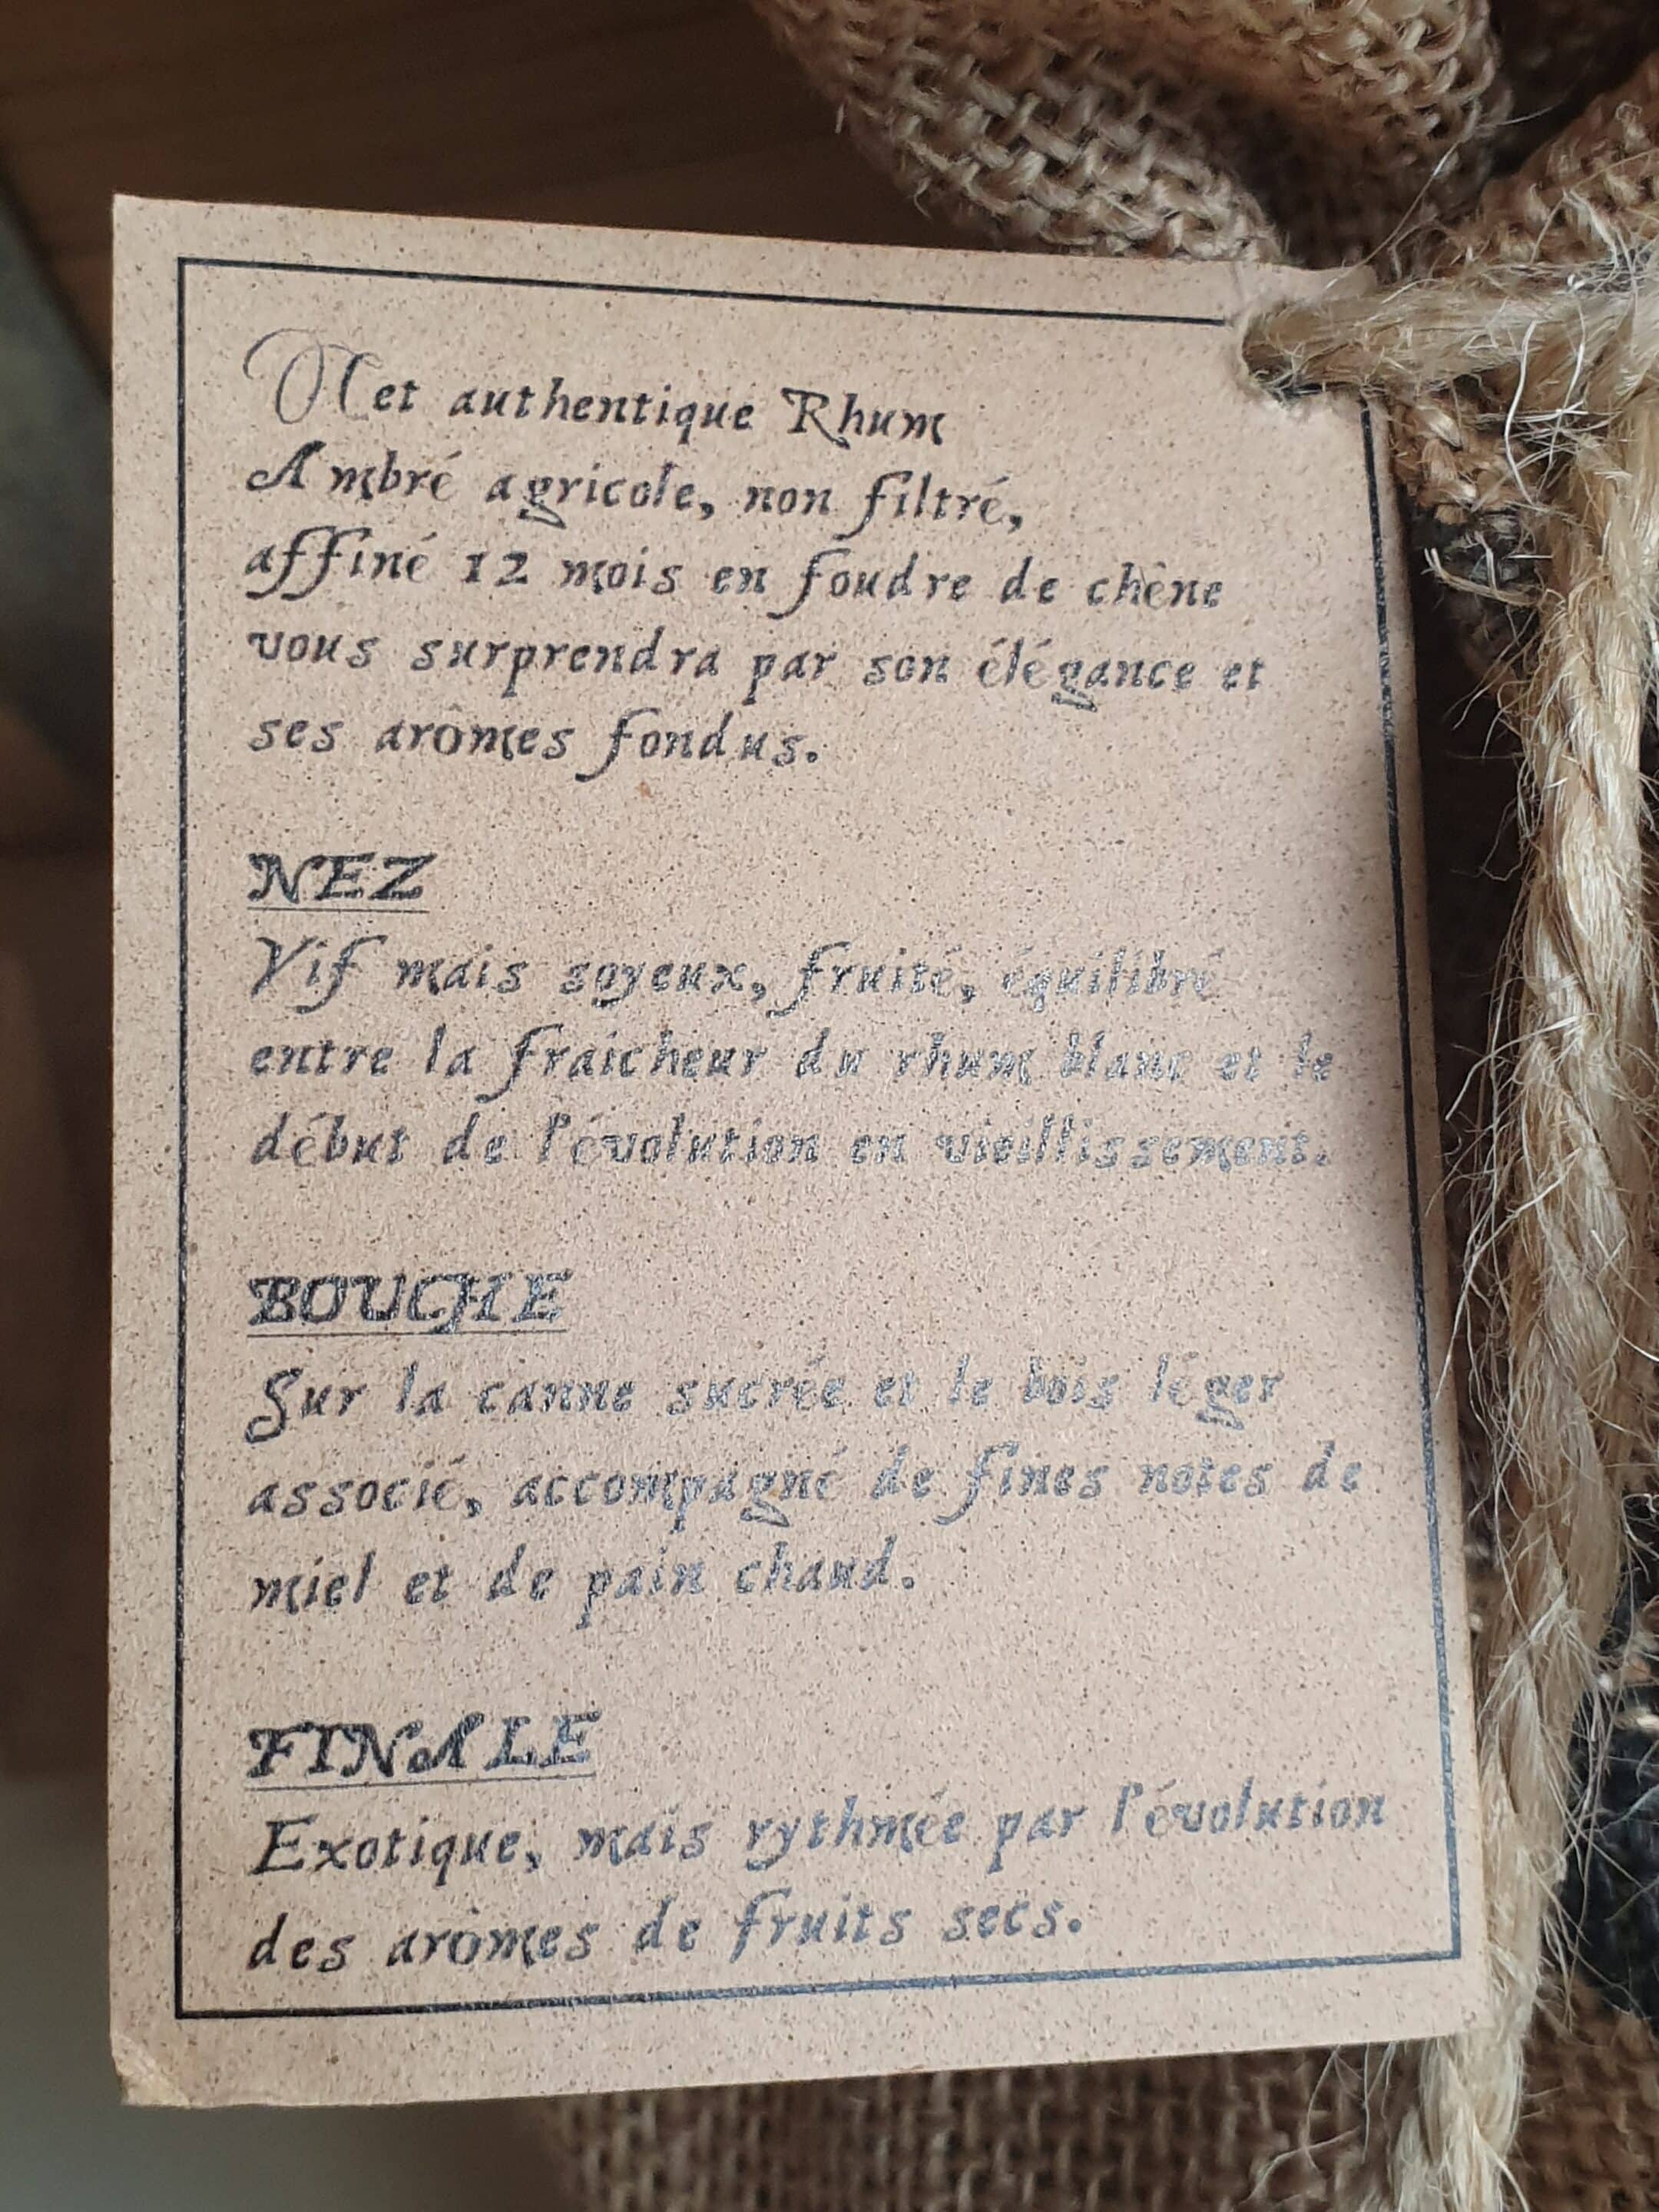 Cet authentique Rhum
Ambré agricole, non filtré,
affiné 12 mois en foudre de chêne
vous surprendra par son élégance et
ses arômes fondus.
NEZ
Vif mais soyeux, fruité, équilibré
entre la fraicheur du rhum blanc et le
début de l'évolution en vieillissement.
BOUCHE
Sur la canne sucrée et le bois léger
associé, accompagné de fines notes de
miel et de pain chaud.
FINALE
Exotique, mais rythmée par l'évolution
des arômes de fruits secs.